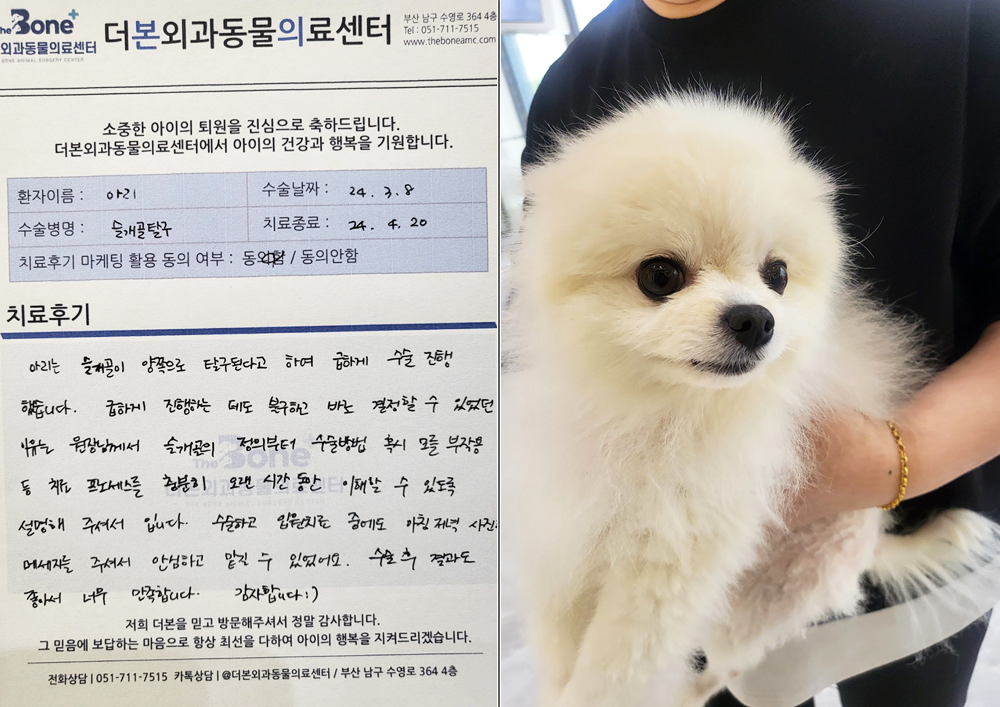 The Bone+
외과동물의료센터
BONE ANIMAL SURGERY CENTER
더본외과동물의료센터
부산 남구 수영로 364 4층
Tel : 051-711-7515
www.theboneamc.com
소중한 아이의 퇴원을 진심으로 축하드립니다.
더본외과동물의료센터에서 아이의 건강과 행복을 기원합니다.
환자이름 : 아리
수술날짜 : 24. 3. 8
수술병명 : 슬개골탈구
치료종료 : 24. 4. 20
치료후기 마케팅 활용 동의 여부 : 동의함 / 동의안함
치료후기
아리는 슬개골이 양쪽으로 탈구된다고 하여 급하게 수술 진행
했습니다. 급하게 진행하는 데도 불구하고 바로 결정할 수 있었던
이유는 원장님께서 슬개골의 정의부터 수술방법 혹시 모를 부작용
등 치료 프로세스를 충분히 오랜 시간 동안 이해할 수 있도록
설명해 주셔서 입니다. 수술하고 입원치료 중에도 아침 저녁 사진
메세지를 주셔서 안심하고 맡길 수 있었어요. 수술 후 결과도
좋아서 너무 만족합니다. 감사합니다:)
The Bone
더본외과동물의료센터
저희 더본을 믿고 방문해주셔서 정말 감사합니다.
그 믿음에 보답하는 마음으로 항상 최선을 다하여 아이의 행복을 지켜드리겠습니다.
전화상담 | 051-711-7515 카톡상담 | @더본외과동물의료센터 / 부산 남구 수영로 364 4층